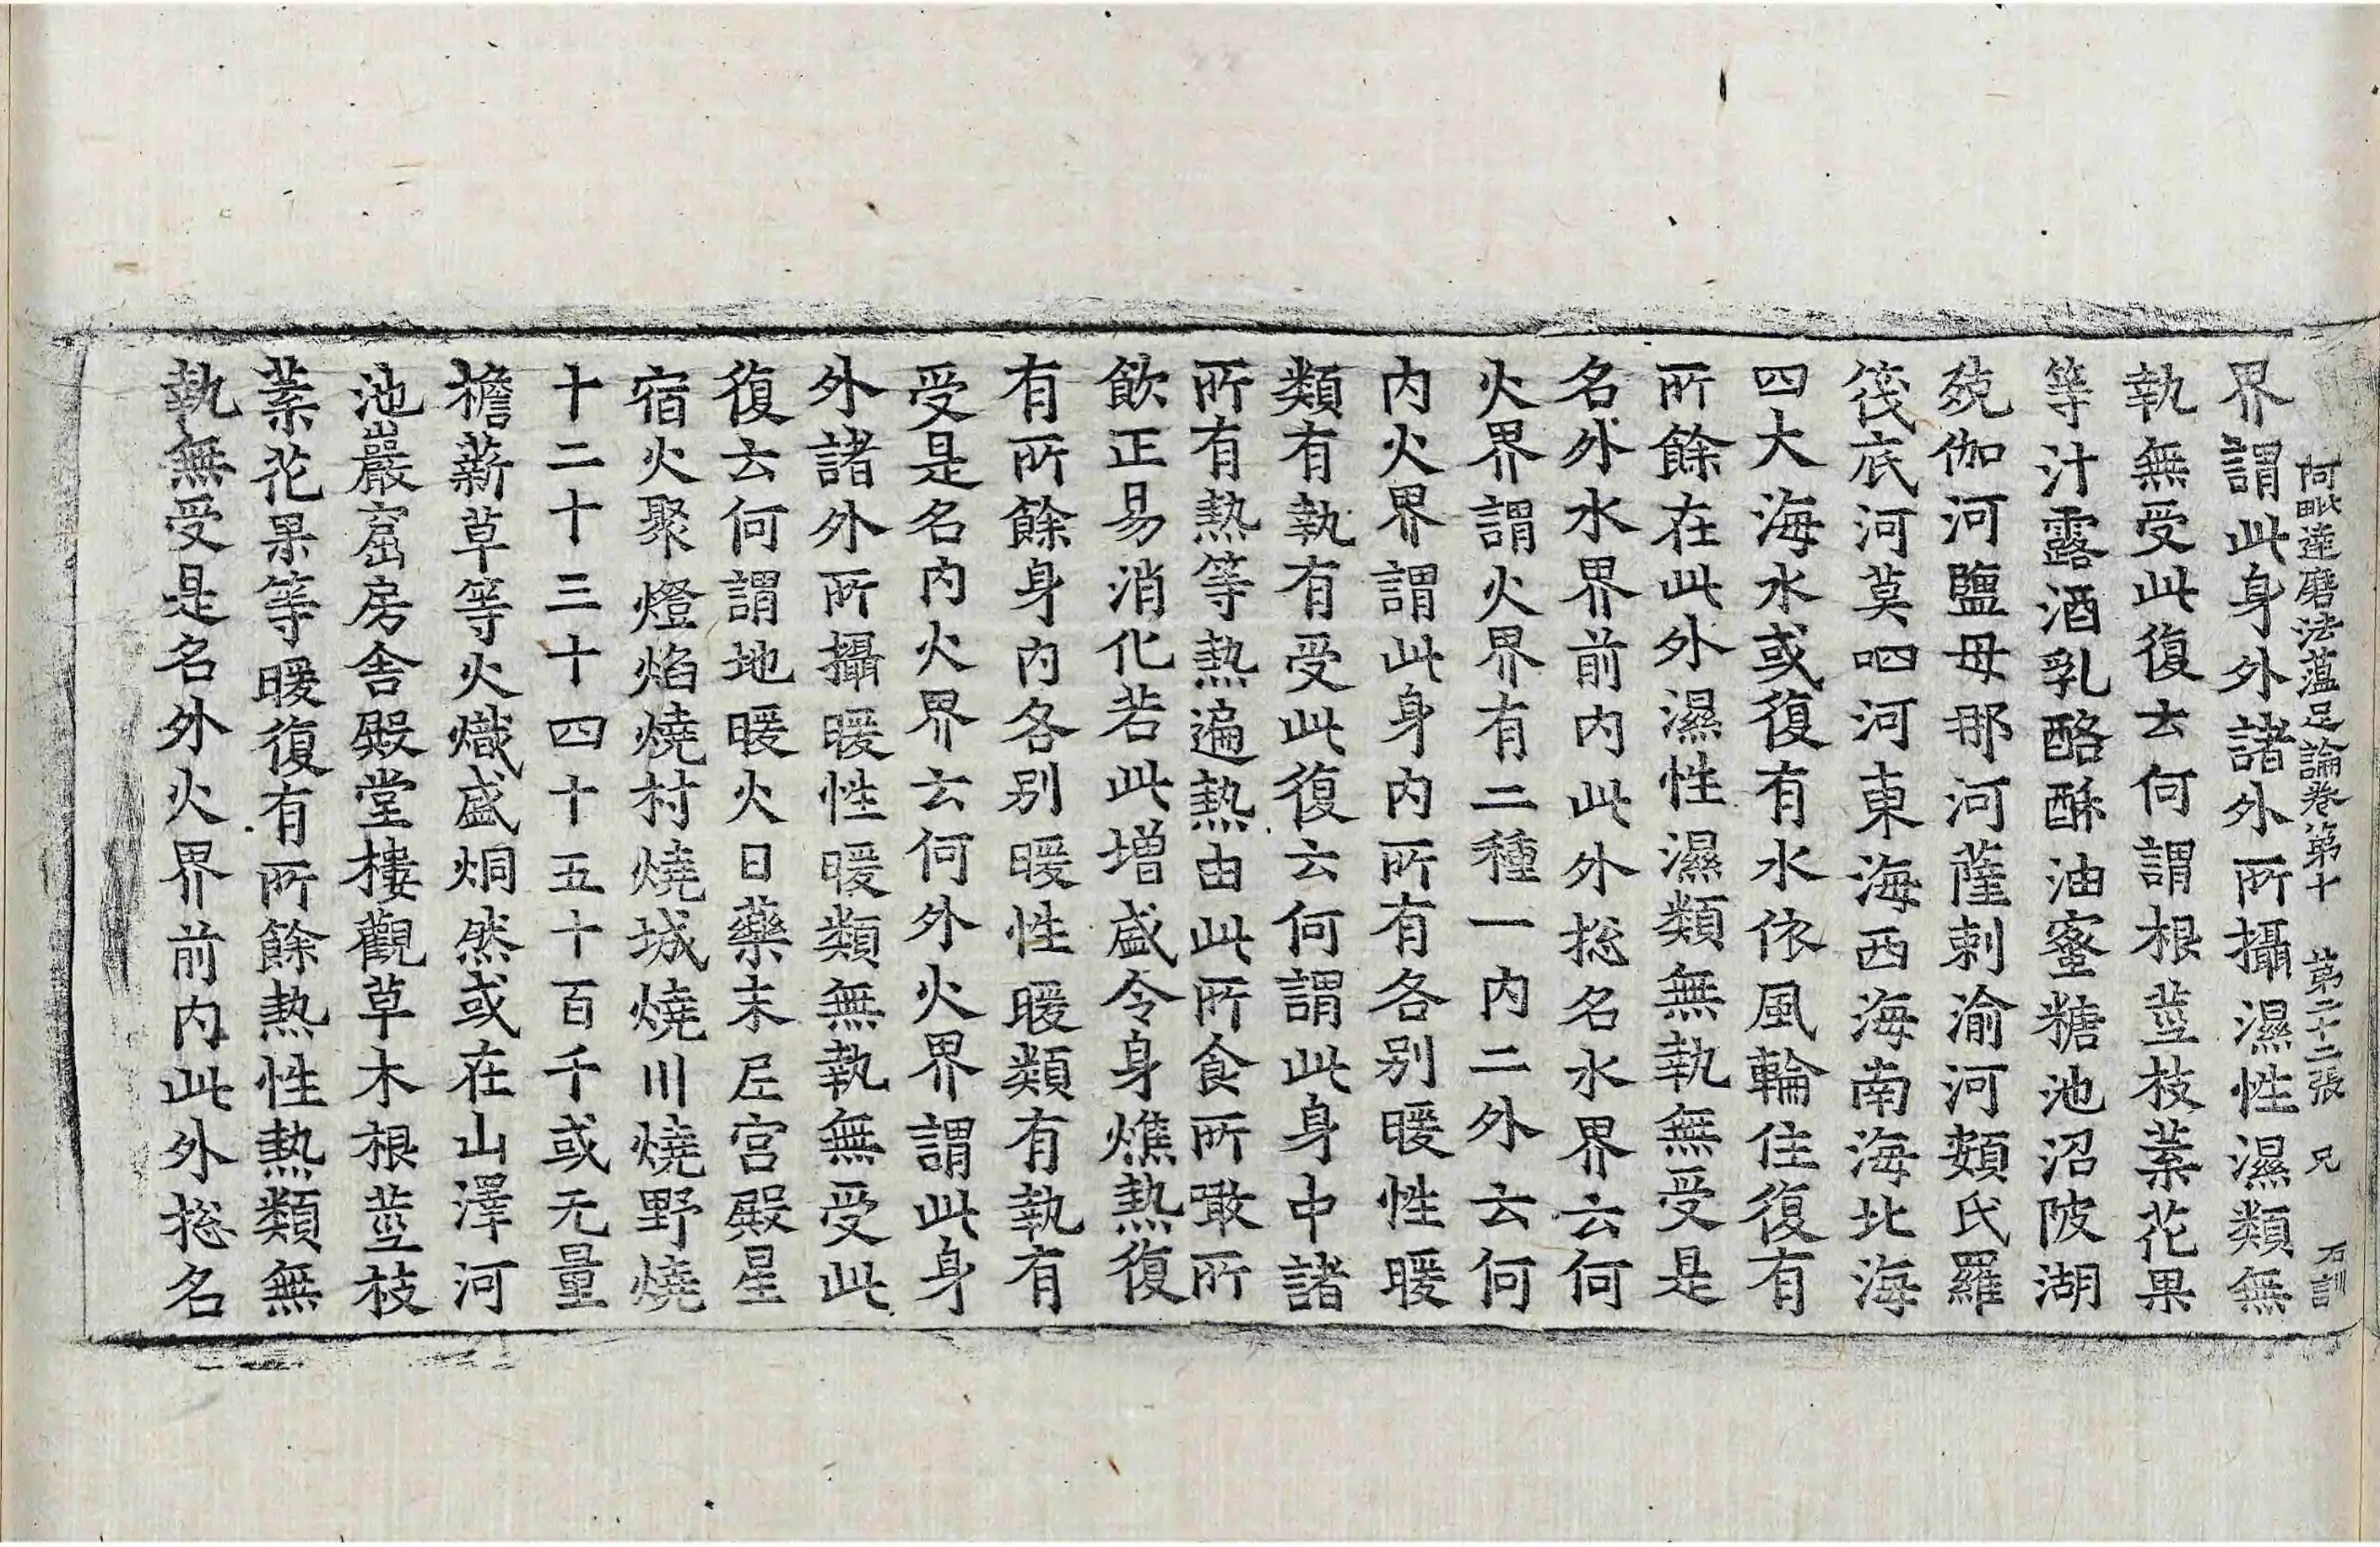 阿毗達磨法蘊足論卷第十 第二十二張 兄 石訓
界謂此身外諸外所攝濕性濕類無
執無受此復云何謂根莖枝葉花果
等汁露酒乳酪酥油蜜糖池沼陂湖
殑伽河鹽母那河薩剌渝河頞氏羅
筏底河莫呬河東海西海南海北海
四大海水或復有水依風輪住復有
所餘在此外濕性濕類無執無受是
名外水界前內此外捴名水界云何
火界謂火界有二種一內二外云何
內火界謂此身內所有各別暖性暖
類有執有受此復云何謂此身中諸
所有熱等熱遍熱由此所食所噉所
飲正易消化若此增盛令身燋熱復
有所餘身內各別暖性暖類有執有
受是名內火界云何外火界謂此身
外諸外所攝暖性暖類無執無受此
復云何謂地暖火日藥末尼宮殿星
宿火聚燈焰燒村燒城燒川燒野燒
十二十三十四十五十百千或无量
檐薪草等火熾盛烔然或在山澤河
池巖窟房舍殿堂樓觀草木根莖枝
葉花果等暖復有所餘熱性熱類無
執無受是名外火界前內此外捴名